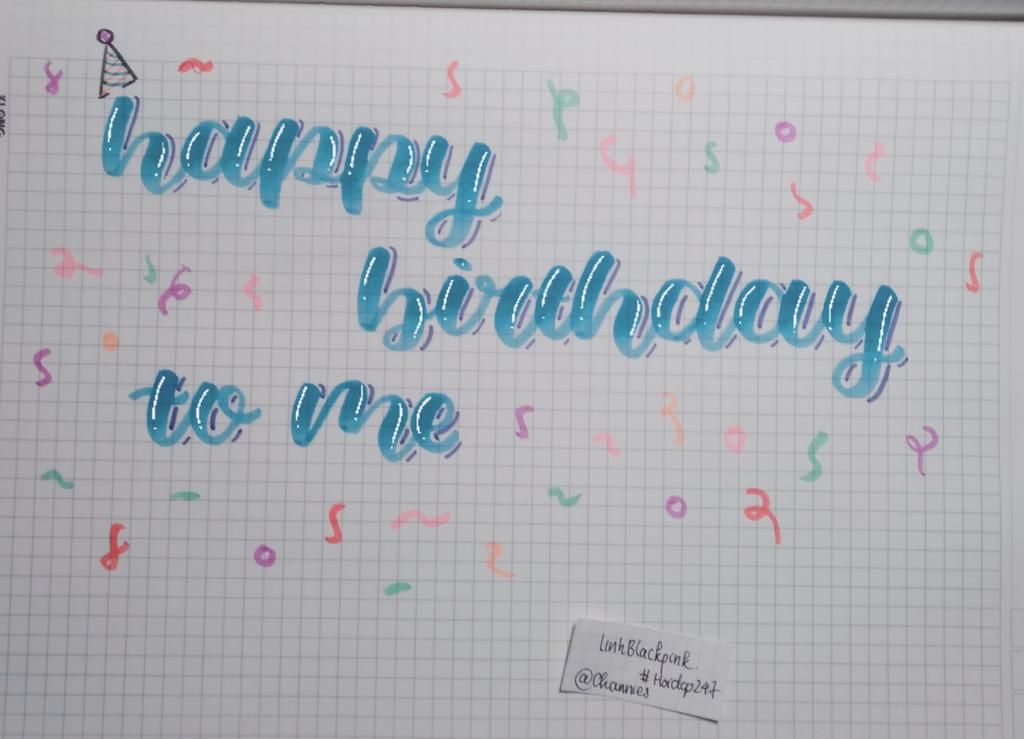 happy
birthday
to me
LinhBlackpink.
#Hoidap247
@Channies